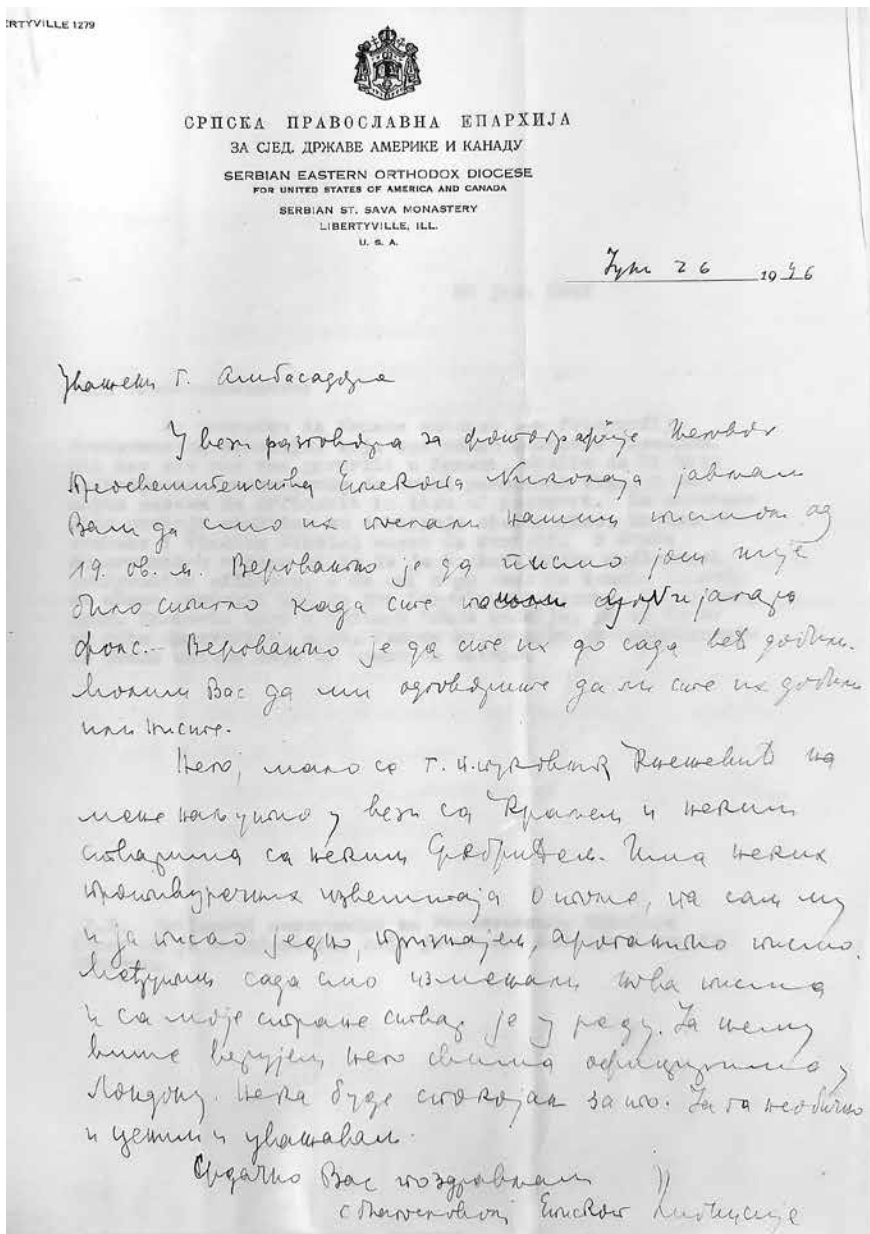 ERTYVILLE 1279
СРПСКА ПРАВОСЛАВНА ЕПАРХИЈА
ЗА СЈЕД. ДРЖАВЕ АМЕРИКЕ И КАНАДУ
SERBIAN EASTERN ORTHODOX DIOCESE
FOR UNITED STATES OF AMERICA AND CANADA
SERBIAN ST. SAVA MONASTERY
LIBERTYVILLE, ILL.
U. S. A.
26 1946
Уважени г. Амбасадоре
У вези разговора за фотографије Његовог
Преосвештенства Епископа Николаја јављам
Вам да смо их послали нашим писмом од
19. ов. м. Вероватно је да писмо још није
било стигло када сте
Вероватно је да сте их до сада већ добили.
Молим Вас да ми одговорите да ли сте их добили
или нисте.
Него, мало се г. п.пуковник Кнежевић на
мене наљутио у вези са Краљем и неким
стварима са неким Ђ. Има неких
противуречних извештаја о томе, па сам му
и ја писао једно, признајем, арогантно писмо.
Међутим сада смо измењали нова писма
и са моје стране ствар је у реду. Ја њему
више верујем него свима официрима у
Лондону. Нека буде спокојан за то. Ја га необично
и ценим и уважавам.
Срдачно Вас поздрављам
с благословом Епископ Дионисије